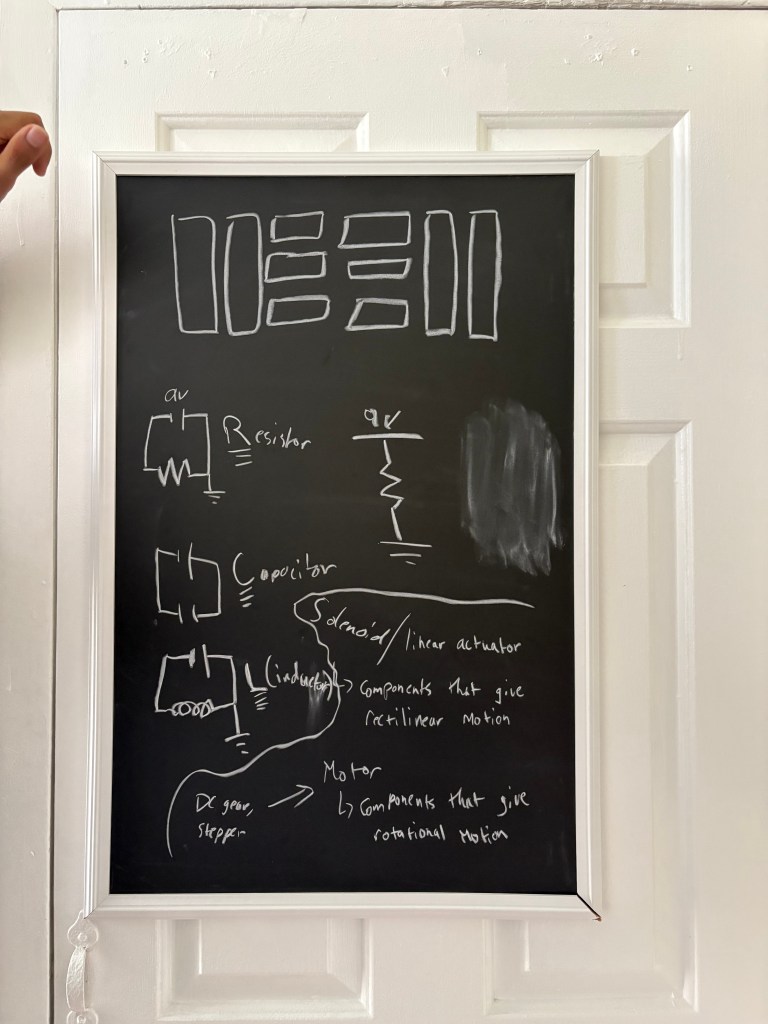 9V
Resistor
9V
Capacitor
Solenoid/linear actuator
L(inductor)
↳ Components that give
rectilinear Motion
Motor
DC gear,
Stepper
↳ Components that give
rotational Motion